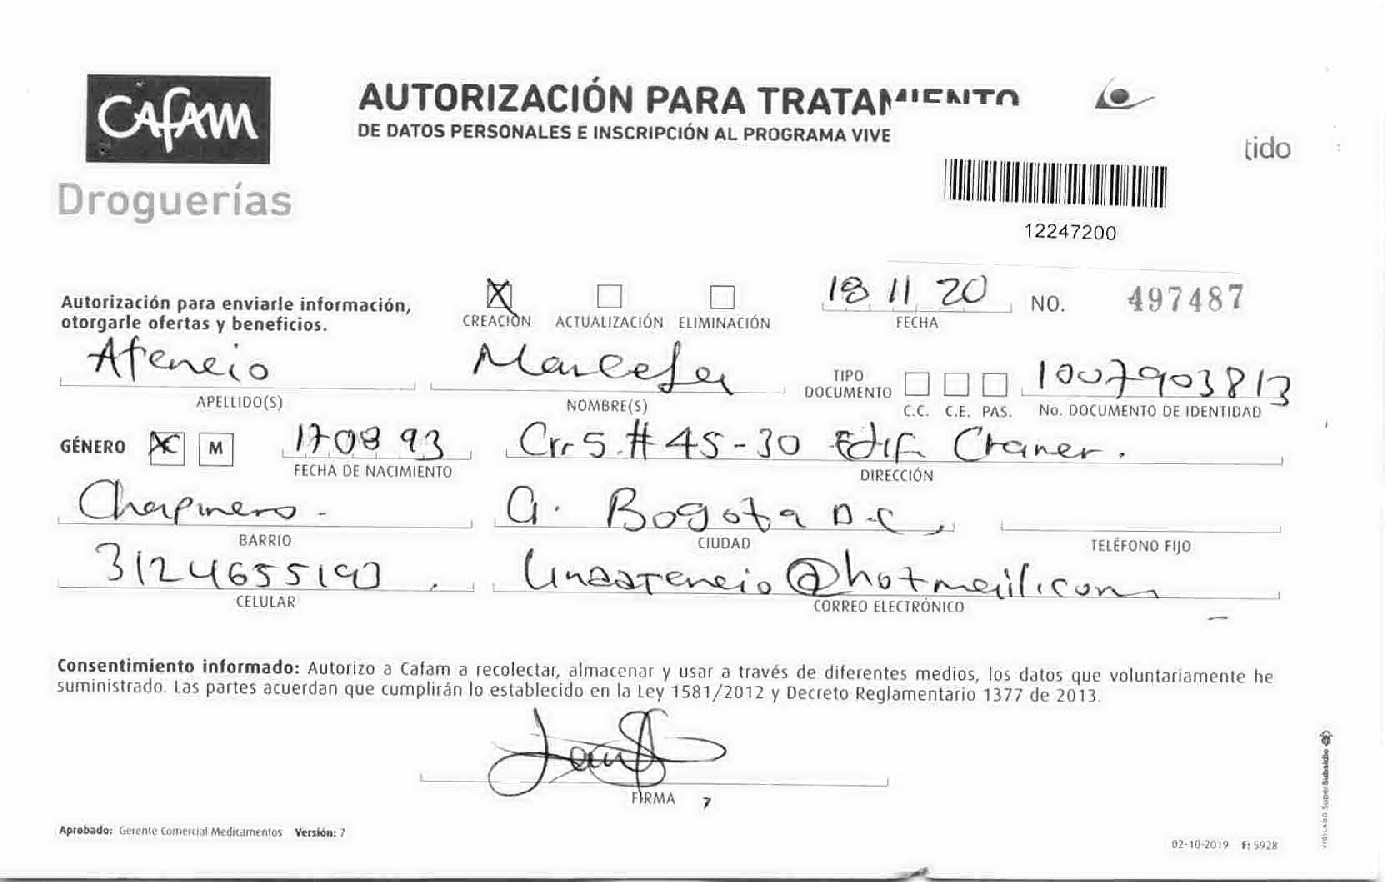 CAFAM
Droguerías
AUTORIZACIÓN PARA TRATAMIENTO
DE DATOS PERSONALES E INSCRIPCIÓN AL PROGRAMA VIVE
tido
12247200
Autorización para enviarle información,
otorgarle ofertas y beneficios.
X
CREACIÓN ACTUALIZACIÓN ELIMINACIÓN
18 11 20
FECHA
NO. 497487
Atencio
APELLIDO(S)
Marcela
NOMBRE(S)
TIPO
DOCUMENTO
C.C. C.E. PAS.
1007903813
No. DOCUMENTO DE IDENTIDAD
GÉNERO X M
170893
FECHA DE NACIMIENTO
Crr 5 # 45-30 Edif. Craner.
DIRECCIÓN
Chapinero -
BARRIO
Bogota D.C
CIUDAD
TELÉFONO FIJO
3124655190
CELULAR
@hotmail.com
CORREO ELECTRÓNICO
Consentimiento informado: Autorizo a Cafam a recolectar, almacenar y usar a través de diferentes medios, los datos que voluntariamente he
suministrado. Las partes acuerdan que cumplirán lo establecido en la Ley 1581/2012 y Decreto Reglamentario 1377 de 2013.
FIRMA
Aprobado: Gerente Comercial Medicamentos Versión: 7
02-10-2019 F: 5928
VIGILADO SuperSubsidio